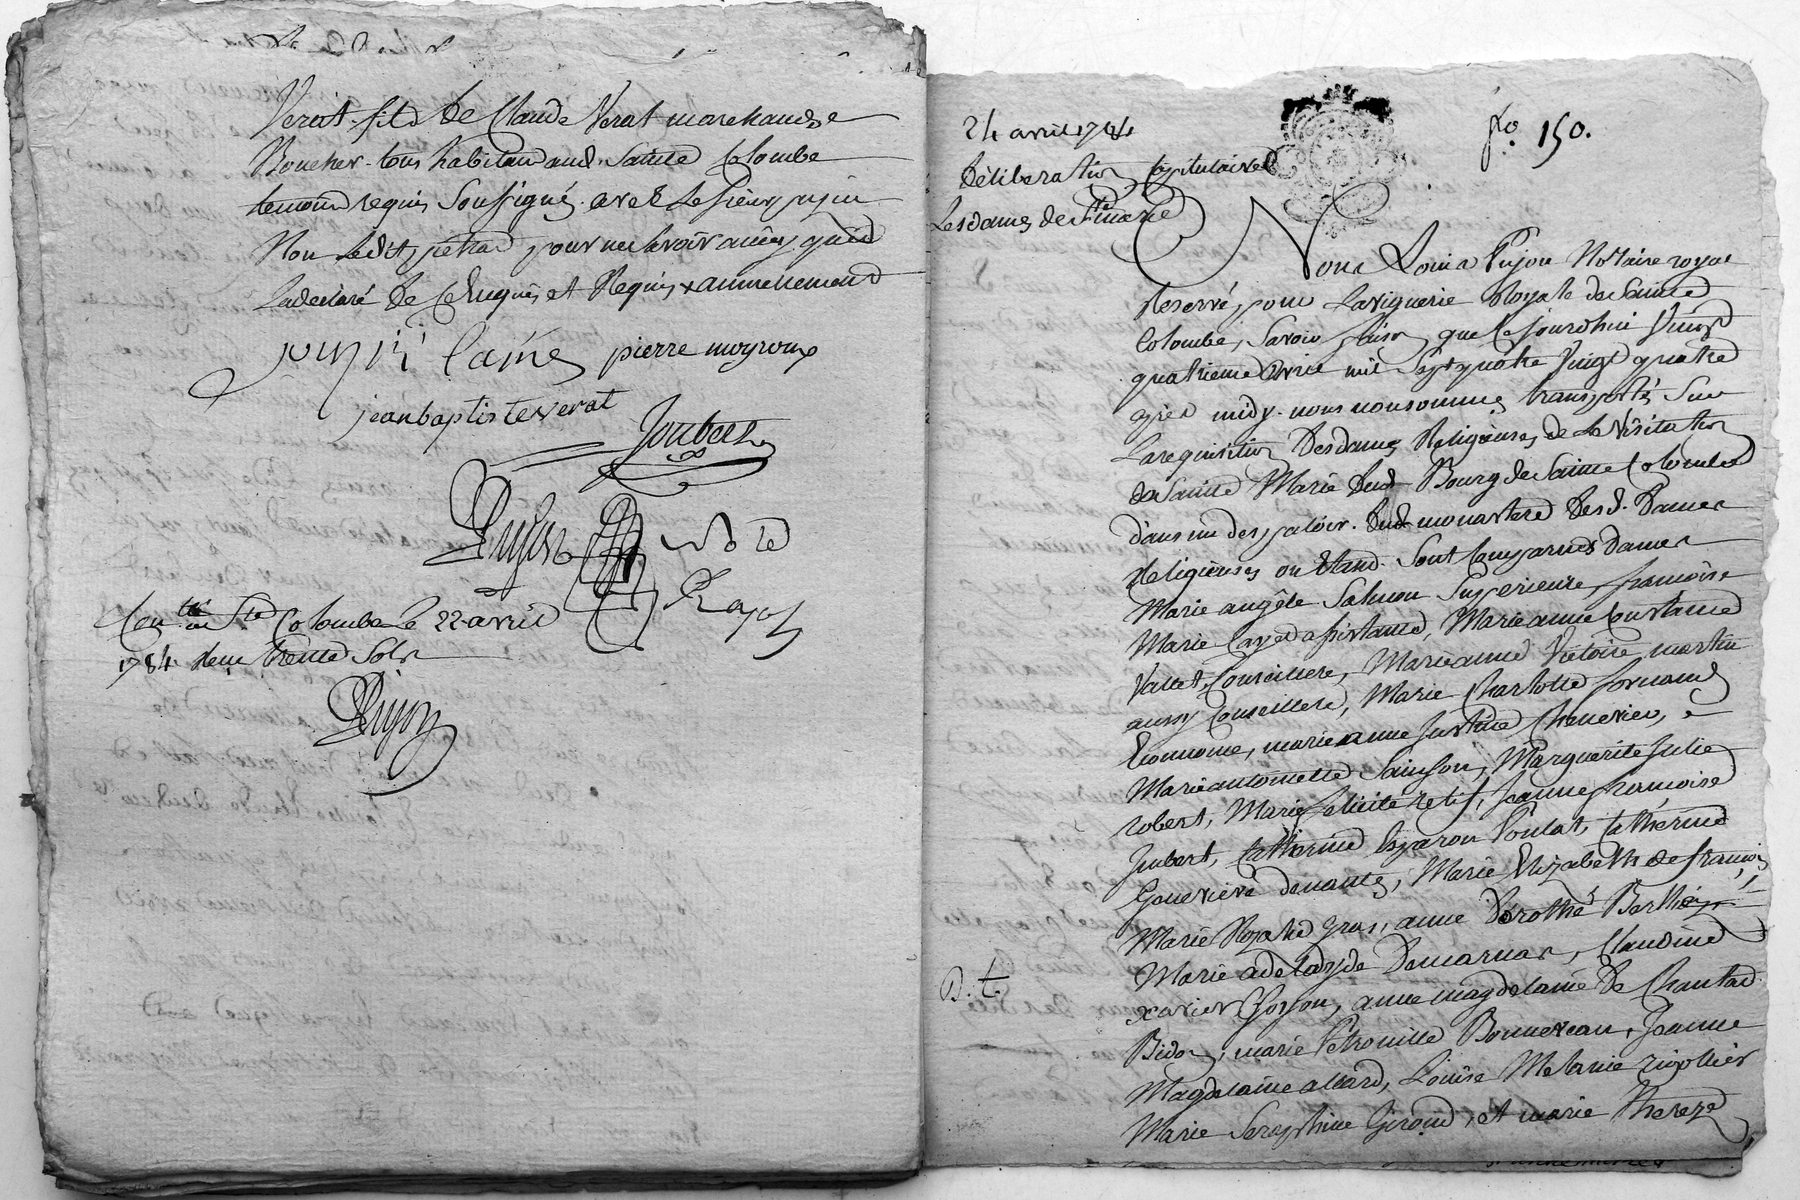 Verat fils de Claude Verat marchand
Boucher tous habitans aud. Sainte Colombe
temoins requis Soussignés avec Le sieur
Non Ledit pour ne Sçavoir ainsy qu'il
La declaré de ce Enquis et Requis
l'ainé pierre moyroux
jean baptiste verat
Joubert
Pujon nore
Royal
Con. a Ste Colombe le 22 avril
1784 Reçu trente Sols
Pujon
24 avril 1784
Déliberation Capitulaire
Les dames de Ste marie
fo. 150.
Nous Louis Pujon Notaire royal
Reservé pour La viguerie Royale de Sainte
Colombe, Savoir faisons que Cejourdhui Vingt
quatrieme avril mil Sept quatre Vingt quatre
après midy nous nous sommes transportés Sur
La requisition Des dames Religieuses de La Visitation
de Sainte Marie dud. Bourg de Sainte Colombe
dans un des parloir dud. monastere Desd. Dames
Religieuses ou Etand. Sont Comparues Dames
Marie angéle Salmon Superieure, françoise
Marie Cayed assistante, Marie anne Constance
Vallet, Conseillere, Marie anne Victoire martin
aussy Conseillere, Marie Charlotte fornand
Econome, marie anne Justine Chenevier,
Marie antoinette Sainson, Marguerite Julie
robert, Marie felicité retif, Jeanne françoise
Jmbert, Catherine Poulat, Catherine
Genevieve denantes, Marie Elizabeth de françois
Marie Rozalie Gras, anne Dorothé Barthé
Marie adelayde Demarnas, Claudine
xavier Chosson, anne magdelaine De Chantal
B. t.
Bidon, marie Petronille Bonneveau, Jeanne
Magdelaine allard, Louise Melanie rigollier
Marie Seraphine Giroud, et marie Thereze